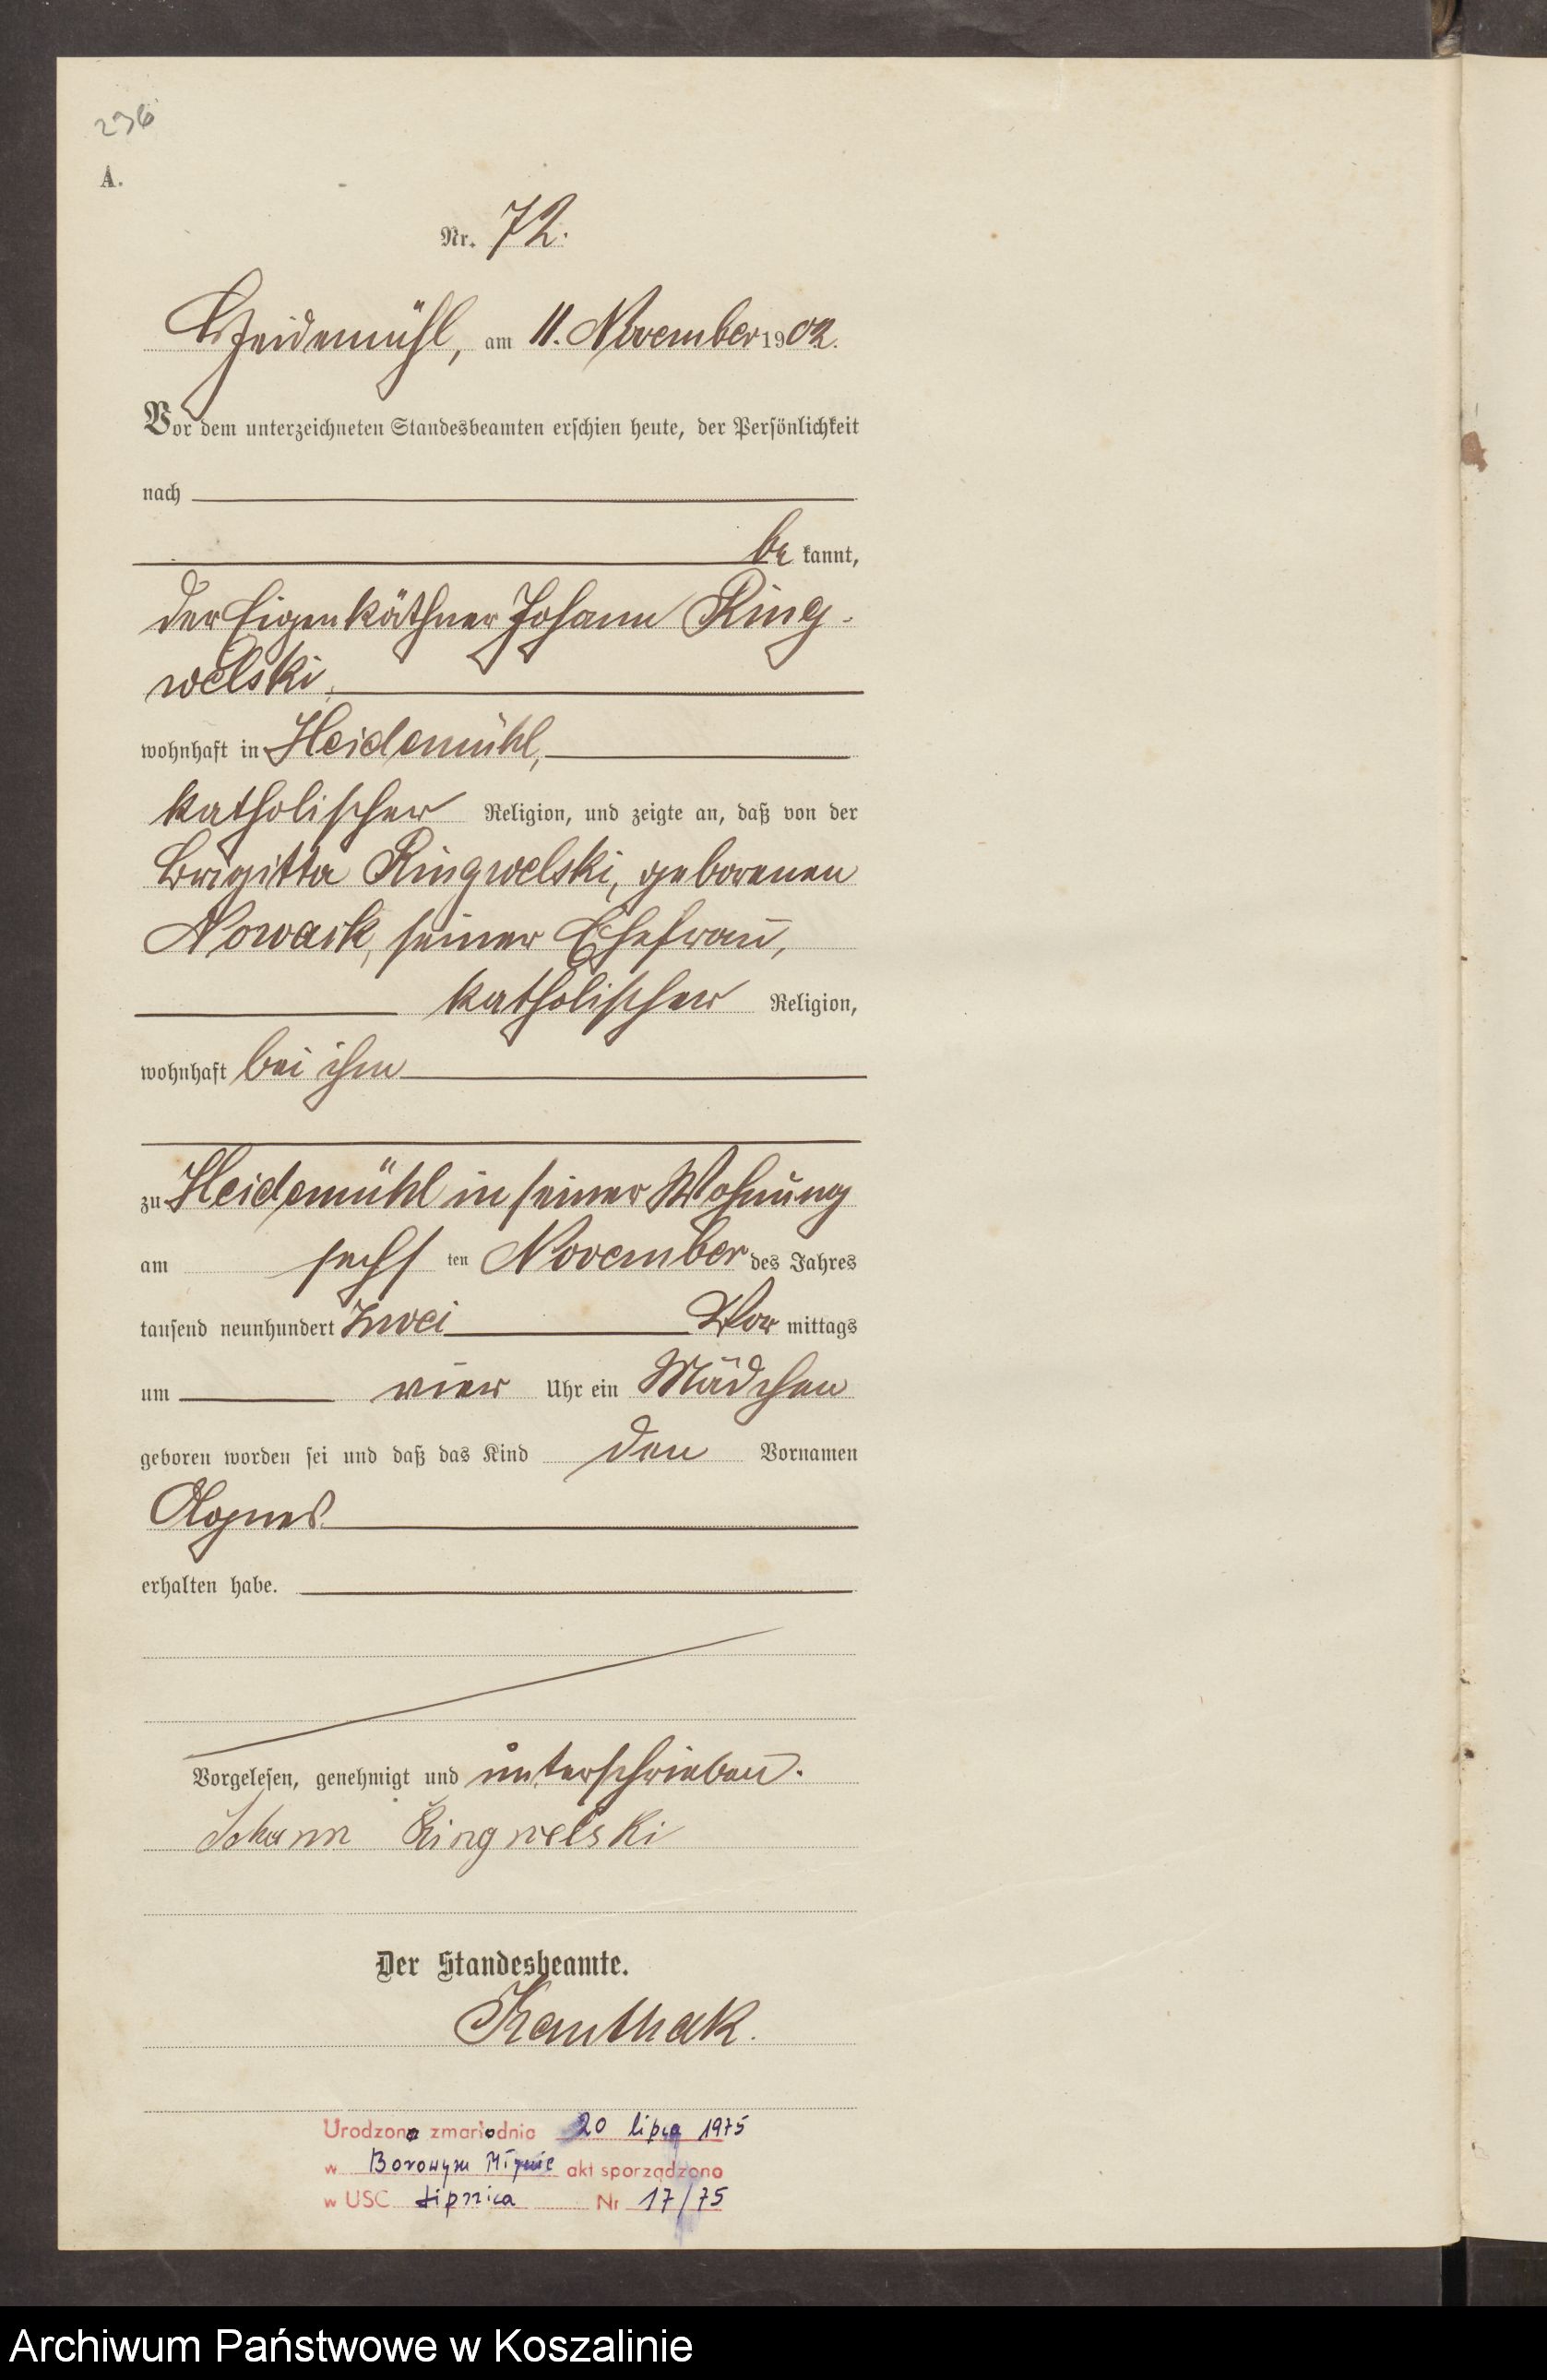 236
A.
Nr. 72.
Heidemühl, am 11. November 1902.
Vor dem unterzeichneten Standesbeamten erschien heute, der Persönlichkeit
nach
be kannt,
der Eigenkäthner Johann Ring-
welski,
wohnhaft in Heidemühl,
katholischer Religion, und zeigte an, daß von der
Brigitta Ringwelski, geborenen
Nowack, seiner Ehefrau,
katholischer Religion,
wohnhaft bei ihm
zu Heidemühl in seiner Wohnung
am sechs ten November des Jahres
tausend neunhundert zwei Vor mittags
um vier Uhr ein Mädchen
geboren worden sei und daß das Kind den Vornamen
Agnes
erhalten habe.
Vorgelesen, genehmigt und unterschrieben.
Johann Ringwelski
Der Standesbeamte.
Kanthak.
Urodzona zmarła dnia 20 lipca 1975
w Borowym Młynie akt sporządzono
w USC Lipnica Nr 17/75
Archiwum Państwowe w Koszalinie